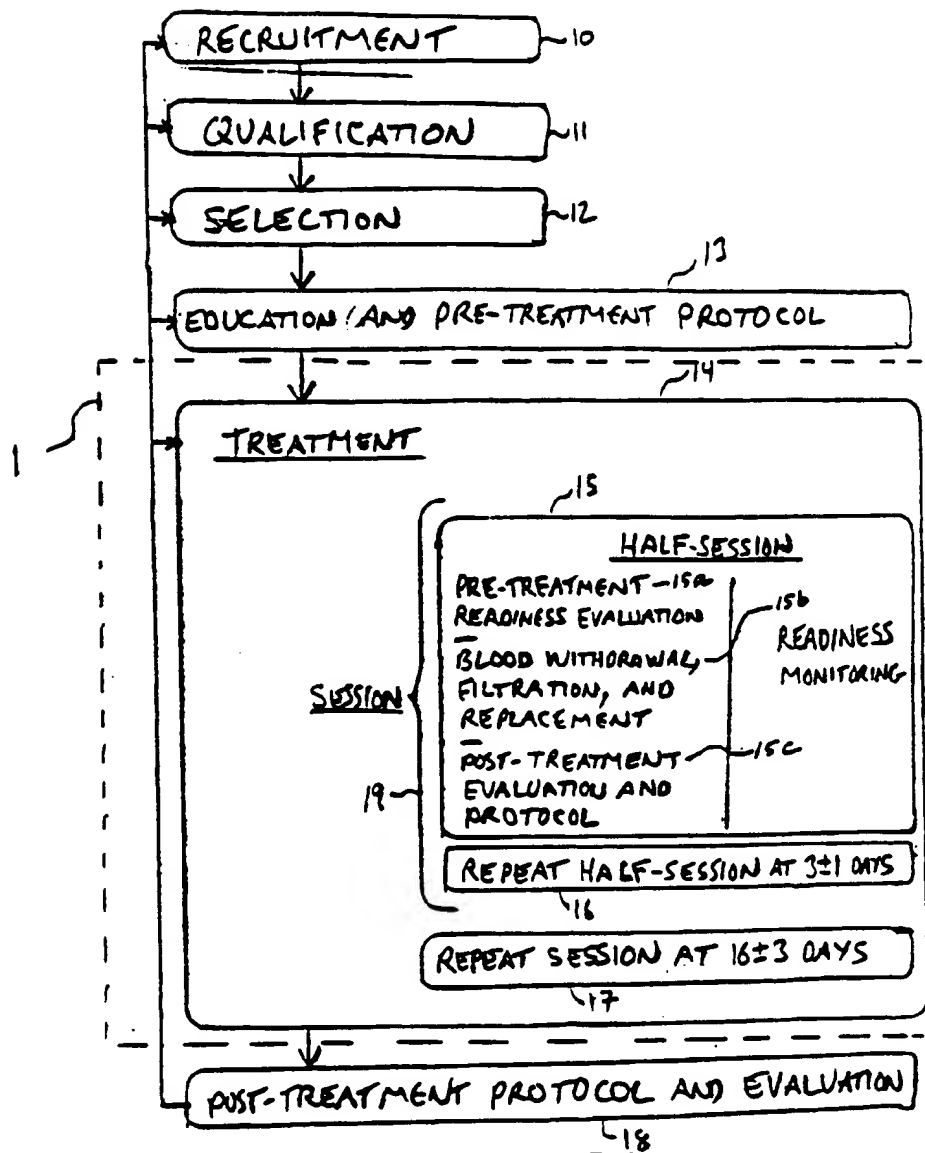 RECRUITMENT 10
QUALIFICATION 11
SELECTION 12
13
EDUCATION/AND PRE-TREATMENT PROTOCOL
14
1
TREATMENT
15
HALF-SESSION
PRE-TREATMENT 15a
READINESS EVALUATION
15b
BLOOD WITHDRAWAL,
FILTRATION, AND
REPLACEMENT
READINESS
MONITORING
POST-TREATMENT 15c
EVALUATION AND
PROTOCOL
SESSION
19
REPEAT HALF-SESSION AT 3±1 DAYS
16
REPEAT SESSION AT 16±3 DAYS
17
POST-TREATMENT PROTOCOL AND EVALUATION
18